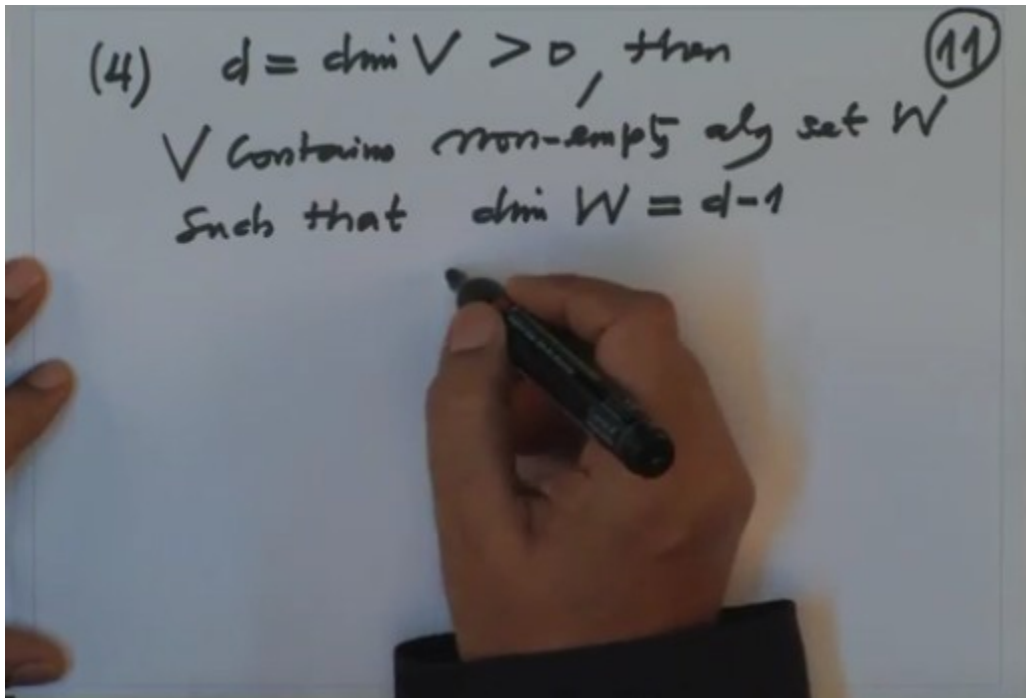 (4) d = dim V > 0, then (11)
V contains non-empty alg set W
such that dim W = d-1